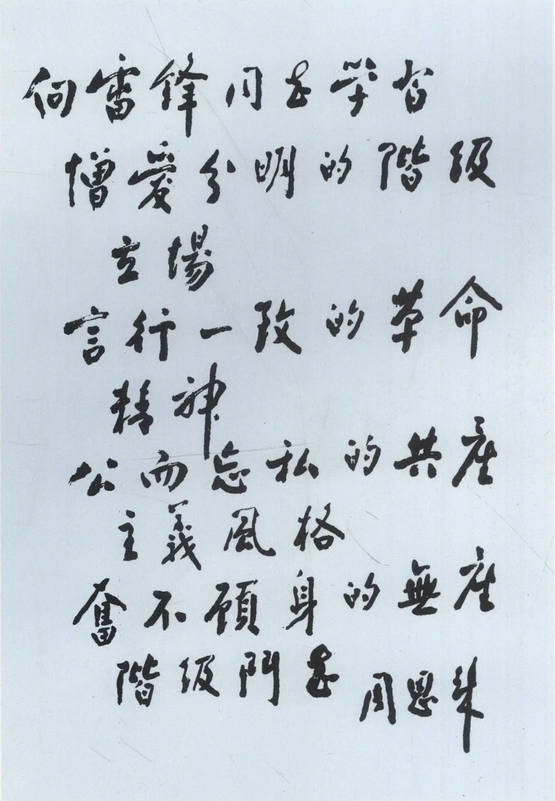 向雷锋同志学習
憎愛分明的階级
立場
言行一致的革命
精神
公而忘私的共産
主義風格
奮不顧身的無産
階级鬥志
周恩来